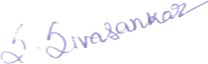 S. Sivasankar